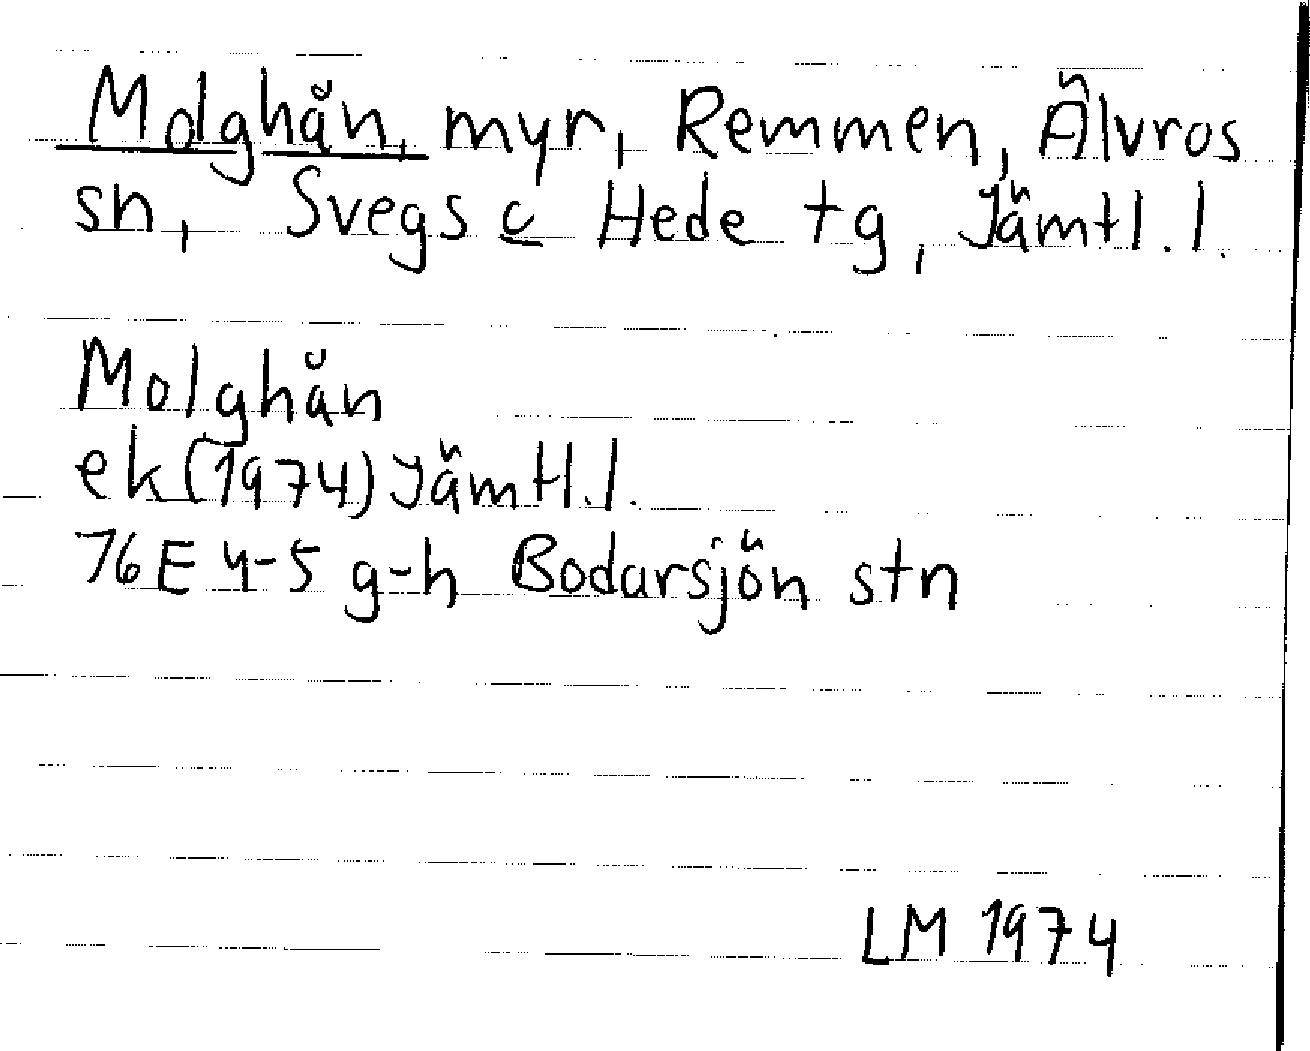 Molghån, myr, Remmen, Älvros
sn, Svegs c Hede tg, Jämtl. l.
Molghån
ek (1974) Jämtl. l.
76E 4-5 g-h Bodarsjön stn
LM 1974